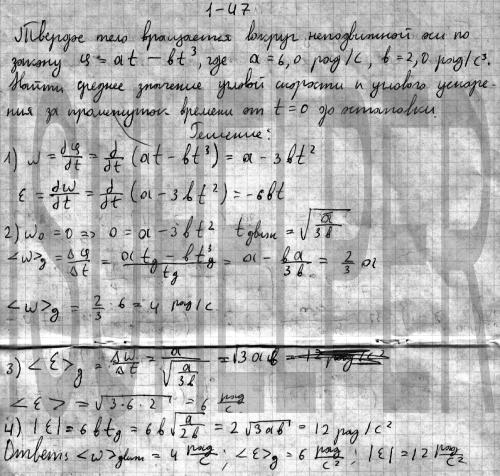 1-47
Твердое тело вращается вокруг неподвижной оси по
закону φ = at - bt³, где a = 6,0 рад/с, b = 2,0 рад/с³.
Найти среднее значение угловой скорости и углового ускоре-
ния за промежуток времени от t = 0 до остановки.
Решение:
1) ω = dφ/dt = d/dt (at - bt³) = a - 3bt²
ε = dω/dt = d/dt (a - 3bt²) = -6bt
2) ω₀ = 0 => 0 = a - 3bt² t движ = √(a/3b)
<ω>g = Δφ/Δt = (atg - btg³)/tg = a - ba/3b = 2/3 a
<ω>g = 2/3 · 6 = 4 рад/с
3) <ε>g = Δω/Δt = a/√(a/3b) = √3ab = 12 рад/с²
<ε> = √3·6·2 = 6 рад/с²
4) |ε| = 6btg = 6b√(a/2b) = 2√3ab = 12 рад/с²
Ответ: <ω>движ = 4 рад/с; <ε>g = 6 рад/с²; |ε| = 12 рад/с²
SUPER